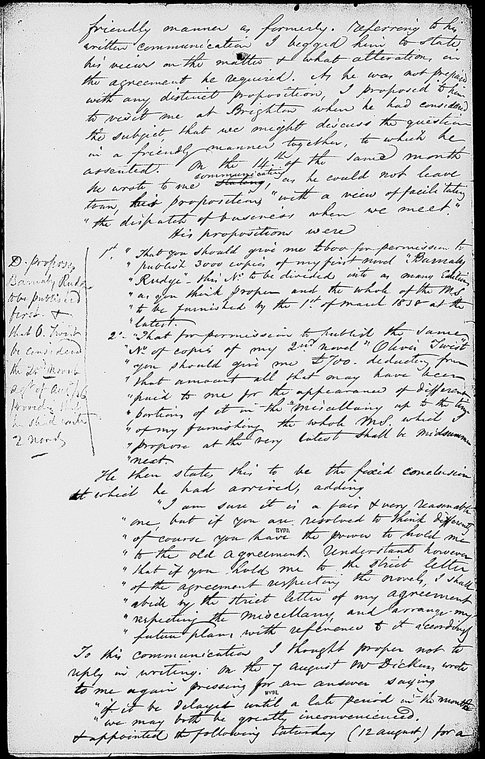 friendly manner as formerly. Referring to his
written communication I begged him to state
his views on the matter & what alterations in
the agreement he required. As he was not prepared
with any distinct proposition, I proposed to him
to visit me at Brighton when he had considered
the subject that we might discuss the question
in a friendly manner together, to which he
assented. On the 14th of the same month
he wrote to me communicating as he could not leave
town, his propositions "with a view of facilitating
"the dispatch of business when we meet."
His propositions were
1st "That you should give me £600 for permission to
"publish 3000 copies of my first novel "Barnaby
"Rudge - this No to be divided into as many Editions
"as you think proper and the whole of the MS.
"to be furnished by the 1st of March 1838 at the
"latest.
2d "That for permission to publish the same
"No of copies of my 2nd novel "Oliver Twist"
"you should give me £700. deducting from
"that amount all that may have been
"paid to me for the appearance of different
"portions of it in the Miscellany up to the time
"of my furnishing the whole MS. which I
"propose at the very latest shall be midsummer
"next.
D. proposes
Barnaby Rudge
to be published
first &
that O. Twist
be considered
the 2d
2 novels
He then states this to be the fixed conclusion
at which he had arrived, adding
"I am sure it is a fair & very reasonable
"one, but if you are resolved to think differently
"of course you have the power to hold me
"to the old agreement. Understand however
"that if you hold me to the strict letter
"of the agreement respecting the novels, I shall
"abide by the strict letter of my agreement
"respecting the Miscellany, and arrange my
"future plans with reference to it accordingly
To this communication I thought proper not to
reply in writing. On the 7 August Mr Dickens wrote
to me again pressing for an answer saying
"if it be delayed until a late period in the month
"we may both be greatly inconvenienced.
& appointed the following Saturday (12 August) for a